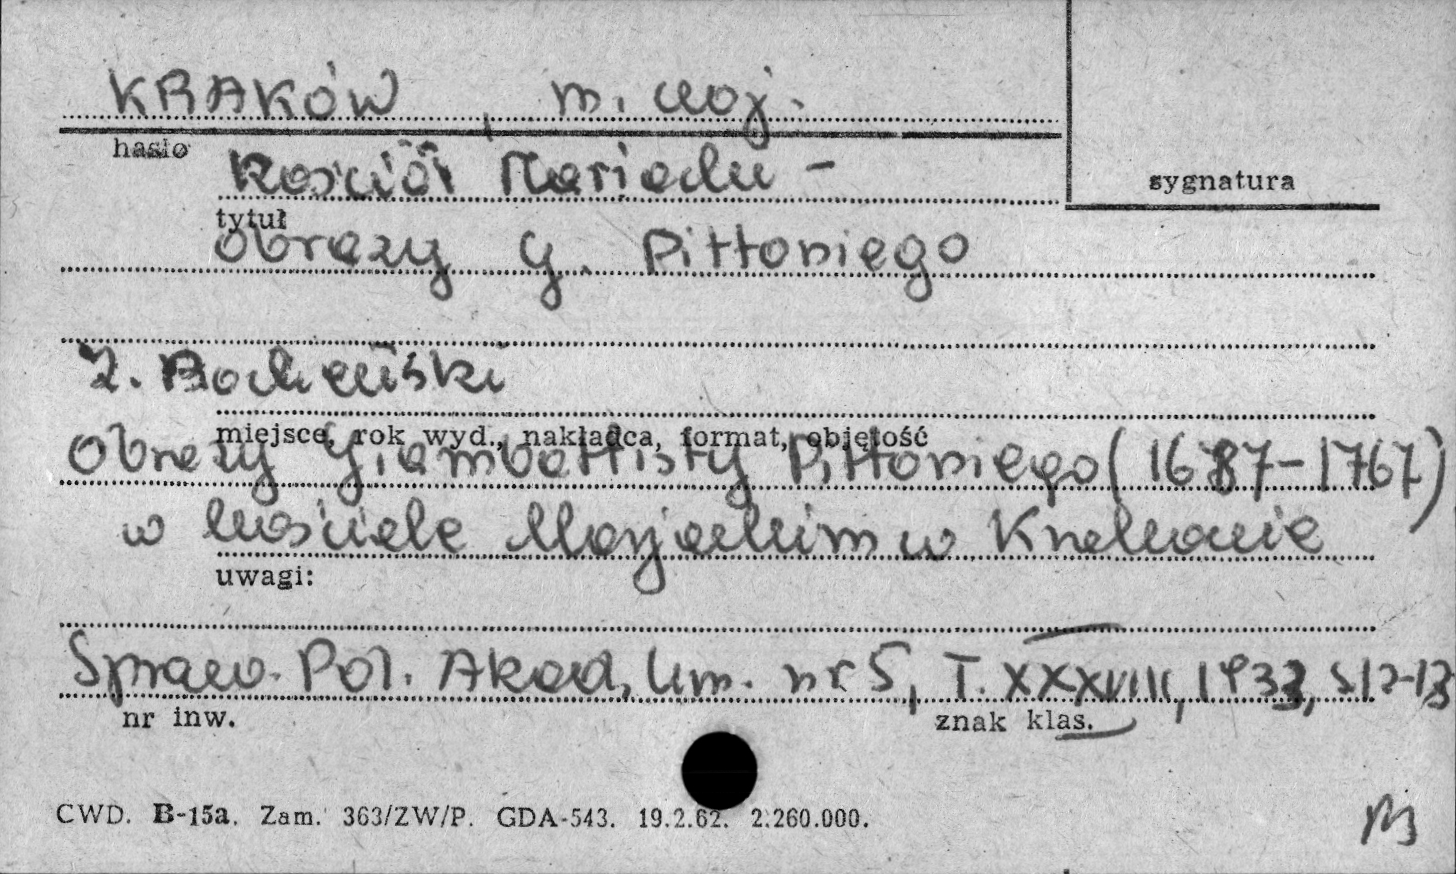 KRAKÓW, m. woj.
hasło
Kościół Mariacki –
sygnatura
tytuł
obrazy G. Pittoniego
Z. Bocheński
miejsce, rok wyd., nakładca, format, objętość
Obrazy Giambattisty Pittoniego (1687–1767)
w kościele Marjackim w Krakowie
uwagi:
Spraw. Pol. Akad. Um. nr 5, T. XXXVIII, 1933, s. 12-13
nr inw.
znak klas.
CWD. B-15a. Zam. 363/ZW/P. GDA-543. 19.2.62. 2.260.000.